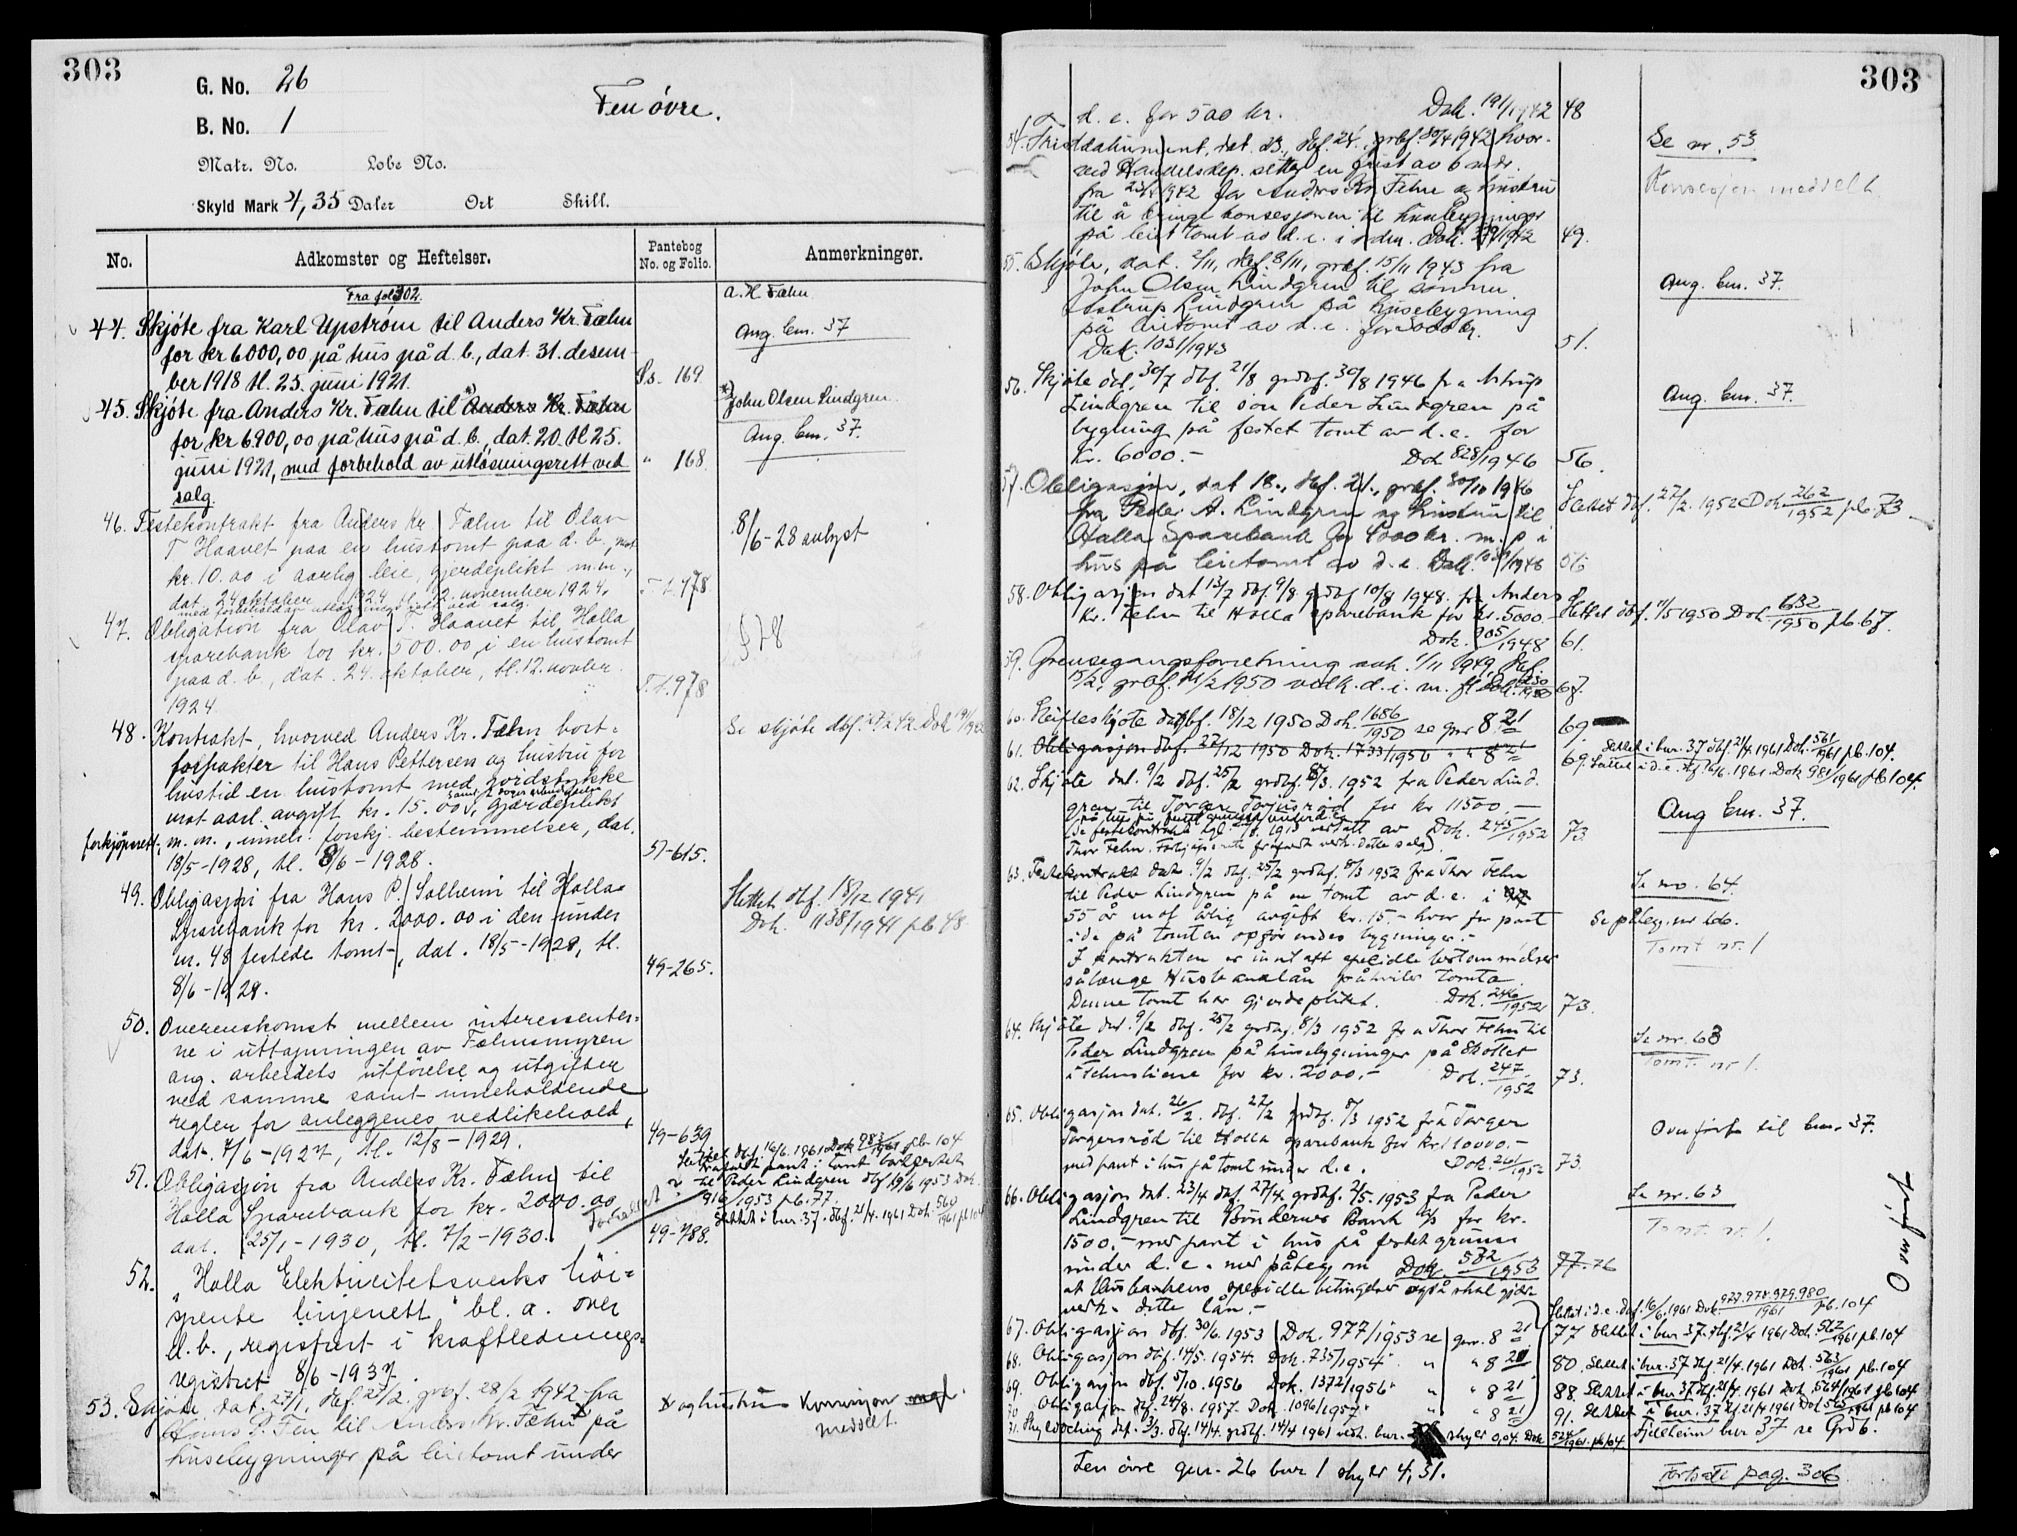 303
G. No. 26
B. No. 1
Fen øvre.
Matr. No. Løbe No.
Skyld Mark 4,35 Daler Ort Skill.
No. Adkomster og Heftelser. Pantebog No. og Folio. Anmerkninger.
Fra fol 302.
44. Skjøte fra Karl Upstrøm til Anders Kr. Fæhn
for kr 6000,00 på hus på d. b., dat. 31. desem-
ber 1918 tl. 25. juni 1921. 169
A. K. Fæhn
Ang. bnr. 37
45. Skjøte fra Anders Kr. Fæhn til Anders Kr. Fæhn
for kr 6900,00 på hus på d. b., dat. 20. tl 25.
juni 1921, med forbehold av utløsningsrett ved " 168
salg.
John Olsen Lindgren.
Ang. bnr. 37.
46. Festekontrakt fra Anders Kr Fæhn til Olav
T Haavet paa en hustomt paa d. b., mot
kr. 10.00 i aarlig leie, gjerdeplikt m.m.,
dat. 24 oktober 1924 tl. 12. november 1924.
8/6-28 avlyst
47. Obligation fra Olav T. Haavet til Holla
sparebank for kr. 500.00, i en hustomt
paa d. b., dat. 24. oktober, tl. 12. novber.
1924.
48. Kontrakt, hvorved Anders Kr. Fæhn bort-
forpakter til Hans Pettersen og hustru for
livstid en hustomt med jordstykke
mot aarl. avgift kr. 15.00, gjærdeplikt
forkjøpsrett, m. m., inneh. forskj. bestemmelser, dat.
18/5-1928, tl. 8/6-1928. 51-615.
Se skjøte
49. Obligasjon fra Hans P. Solheim til Holla
Sparebank for kr. 2000.00 i den under
nr. 48 festede tomt, dat. 18/5-1928, tl.
8/6-1928. 49-265.
Slettet dbf. 18/12 1941
Dok. 1138/1941 pb 48.
50. Overenskomst mellem interessenter-
ne i uttapningen av Fæhnsmyren
ang. arbeidets utførelse og utgifter
ved samme samt inneholdende
regler for anleggenes vedlikehold,
dat. 7/6-1927, tl. 12/8-1929. 49-639
51. Obligasjon fra Anders Kr. Fæhn til
Holla Sparebank for kr. 2000.00
dat. 25/1-1930, tl. 7/2-1930. 49-788.
Slettet dbf. 16/6. 1961 Dok 983/1961 pb 104
til Peder Lindgren dbf 19/6 1953 Dok.
916/1953 pb. 77.
Slettet i bnr. 37. dbf. 21/4. 1961 Dok. 560/1961 pb 104
52. "Holla Elektricitetsverks høi-
spente linjenett" bl. a. over
d. b., registrert i kraftlednings-
registret 8/6-1937.
53. Skjøte, dat. 27/1, dbf. 27/2, grbf. 28/2 1942 fra
Hans P. Fen til Anders Kr. Fehn x på
husebygninger på leietomt under
x og hustru Konsesjon
meddelt.
303
d. e. for 500 kr. Dok. 191/1942 48
54. Fristdokument, dat. 23., dbf. 24., grbf. 30/4 1942 hvor-
ved Handelsdep. setter en frist av 6 mdr.
fra 23/4 1942 for Anders Kr. Fehn og hustru
til å bringe konsesjonen til husebygninger
på leiet tomt av d. e. i orden. 49.
Se nr. 53
Konsesjon meddelt.
55. Skjøte, dat. 2/11, dbf. 8/11, grbf. 15/11 1943 fra
John Olsen Lindgren til sønnen
Astrup Lindgren på husebygning
på leietomt av d. e. for 5000 kr.
Dok. 1031/1943 51.
Ang. bnr. 37.
56. Skjøte dat. 30/7 dbf. 21/8 grdbf. 30/8 1946 fra Astrup
Lindgren til sønn Peder Lindgren på
bygning på festet tomt av d. e. for
Kr. 6000.- Dok 828/1946 56.
Ang. bnr. 37.
57. Obligasjon, dat 18., dbf. 21., grbf. 30/10 1946
fra Peder A. Lindgren og hustru til
Holla Sparebank for 4000 kr. m. p. i
hus på leietomt av d. e. 56
Slettet dbf. 27/2. 1952 Dok 262/1952 pb. 73
58. Obligasjon dat 13/7 dbf. 9/8 grdbf 10/8 1948. fra Anders
Kr. Fehn til Holla sparebank for kr. 5000.-
Dok. 905/1948 61.
Slettet dbf. 11/5 1950 Dok 632/1950 pb. 67.
59. Grensegangsforretning avh. 1/11 1949, dbf.
15/2, grbf. 21/2 1950 vedk. d. e. m. fl. 67.
60. Skifteskjøte dbf. 18/12 1950 Dok. 1686/1950 se gnr 8 21 69
61. Obligasjon dbf. 27/12 1950 Dok. 1733/1950 " " 8 21 69.
Slettet i bnr. 37 dbf. 21/4 1961 Dok. 561/1961 pb. 104.
Slettet i d. e. dbf. 16/6. 1961. Dok 981/1961 pb 104.
62. Skjøte dat. 9/2 dbf. 25/2 grdbf. 8/3. 1952 fra Peder Lind-
gren til Torger Torgersrød for kr 11500,-
Dok. 245/1952 73.
Ang bnr. 37.
63. Festekontrakt dat. 9/2 dbf. 25/2 grdbf. 8/3 1952 fra Thor Fehn
til Peder Lindgren på en tomt av d. e. i
55 år mot årlig avgift kr. 15.- hvor for pant
i de på tomten oppførendes bygninger.-
I kontrakten er inntatt spesielle bestemmelser
sålenge Husbanklån påhviler tomta
Denne tomt har gjerdeplikt. Dok. 246/1952 73.
Se no. 64.
Tomt nr. 1
64. Skjøte dat. 9/2 dbf. 25/2 grdbf. 8/3 1952 fra Thor Fehn til
Peder Lindgren på husebygninger på Skottet
i Fehnsliene for kr. 2000.- Dok. 247/1952 73.
Se nr. 63
Tomt nr 1.
65. Obligasjon dat. 26/2. dbf. 27/2 grdbf. 8/3 1952 fra Torger
Torgersrød til Holla sparebank for kr. 10000.-
med pant i hus på tomt under d. e. Dok. 261/1952 73.
Overført til bnr. 37.
66. Obligasjon dat. 23/4 dbf. 27/4. grdbf. 2/5. 1953 fra Peder
Lindgren til Bøndernes Bank A/S for kr.
1500.- med pant i hus på festet grunn
under d. e. med påtegn om Dok. 582/1953 77. 76
at Husbankens spesielle betingelser også skal gjelde
vedk. dette lån.-
Se nr. 63
Tomt nr. 1.
Slettet i d. e. dbf. 16/6. 1961 Dok. 977.978.979.980/1961 pb. 104
67. Obligasjon dbf. 30/6. 1953 Dok. 977/1953 se gnr. 8 21 77 Slettet i bnr. 37. dbf. 21/4 1961 Dok. 562/1961 pb. 104
68. Obligasjon dbf. 14/5. 1954. Dok. 735/1954 " " 8 21 80. Slettet i bnr. 37 dbf 21/4. 1961 Dok. 563/1961 pb. 104
69. Obligasjon dbf. 5/10. 1956 Dok. 1372/1956 " " 8 21 88. Slettet i bnr. 37 dbf. 21/4. 1961 Dok 564/1961 pb 104
70. Obligasjon dbf. 24/8. 1957. Dok. 1096/1957 " " 8 21 91. Slettet i bnr. 37 dbf. 21/4 1961 Dok 565/1961 pb 104
71. Skylddeling dat. 3/3. dbf. 14/4. grdbf. 14/4 1961 vedk. bnr. skyld 0,04. Dok 524/1961. pb 104. Fjellheim bnr 37 se Grdb.
Fen øvre gnr. 26 bnr 1 skyld 4,31.
Fortsatt pag. 306
Overført